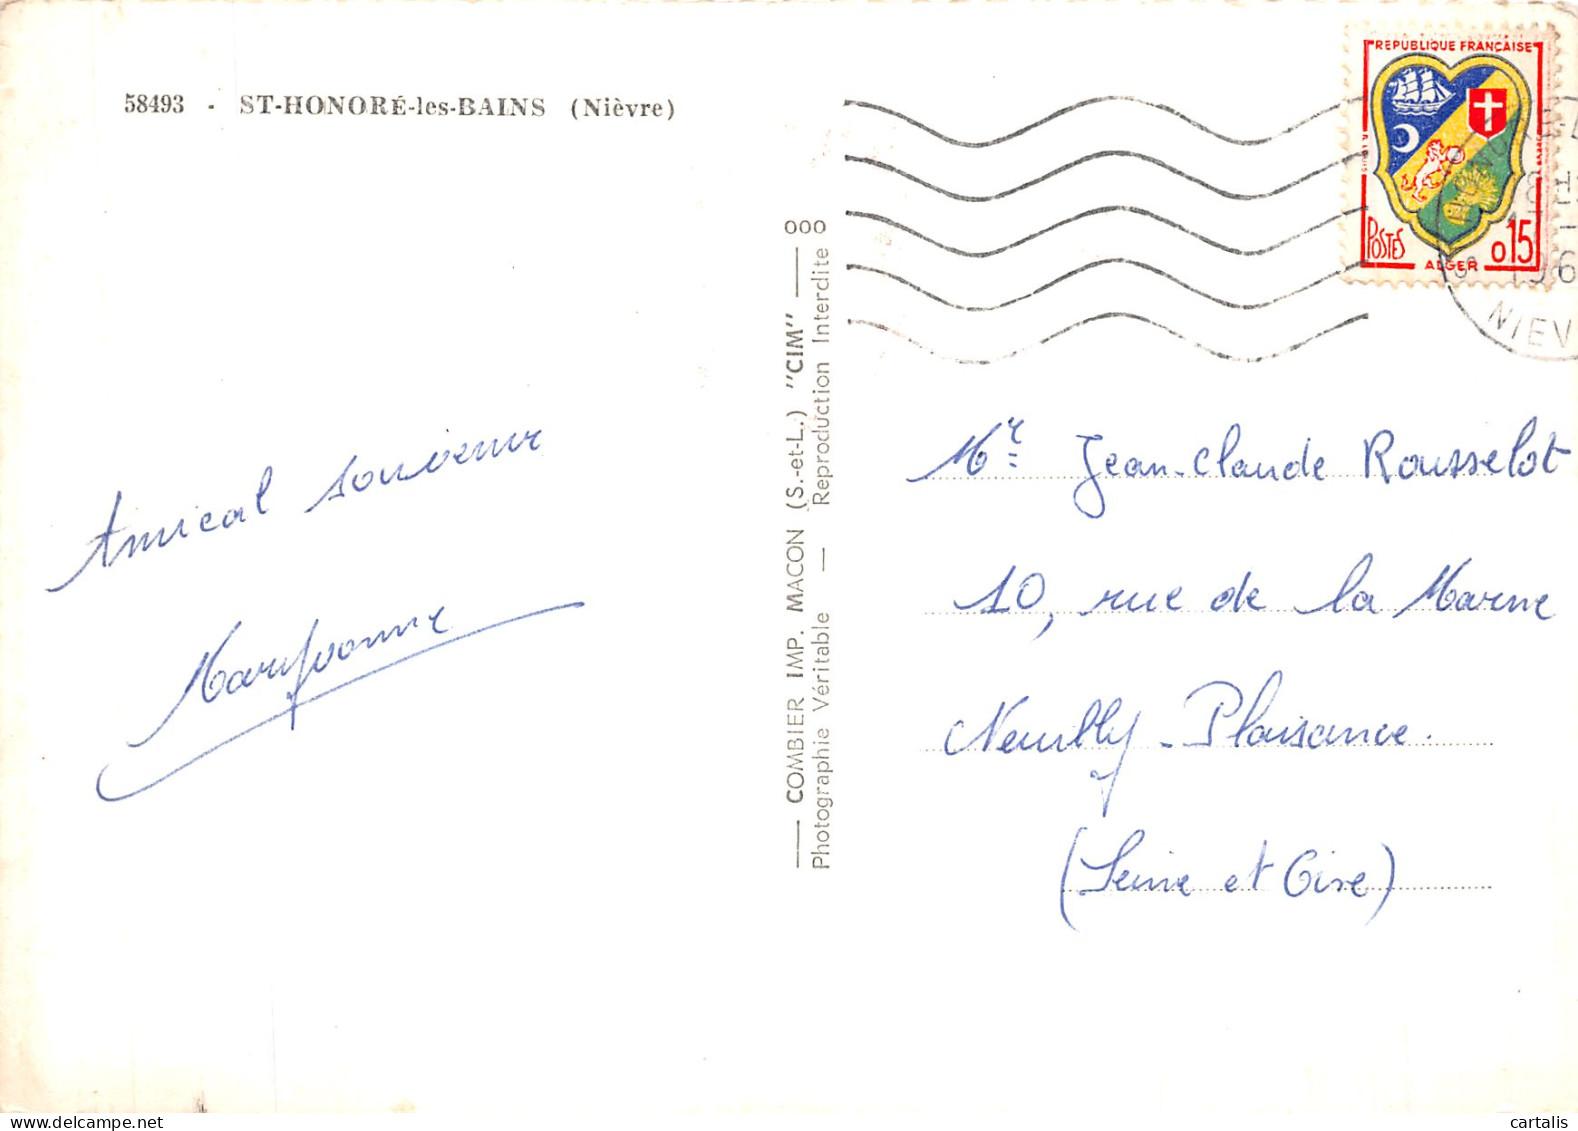 58493 - ST-HONORÉ-les-BAINS (Nièvre)
REPUBLIQUE FRANÇAISE
POSTES
ALGER
0,15
NIEV
Amical souvenir
Maryvonne
000
COMBIER IMP. MACON (S.-et-L.) "CIM"
Photographie Véritable — Reproduction Interdite
Mr Jean-Claude Rousselot
10, rue de la Marne
Neuilly-Plaisance.
(Seine et Oise)
cartalis